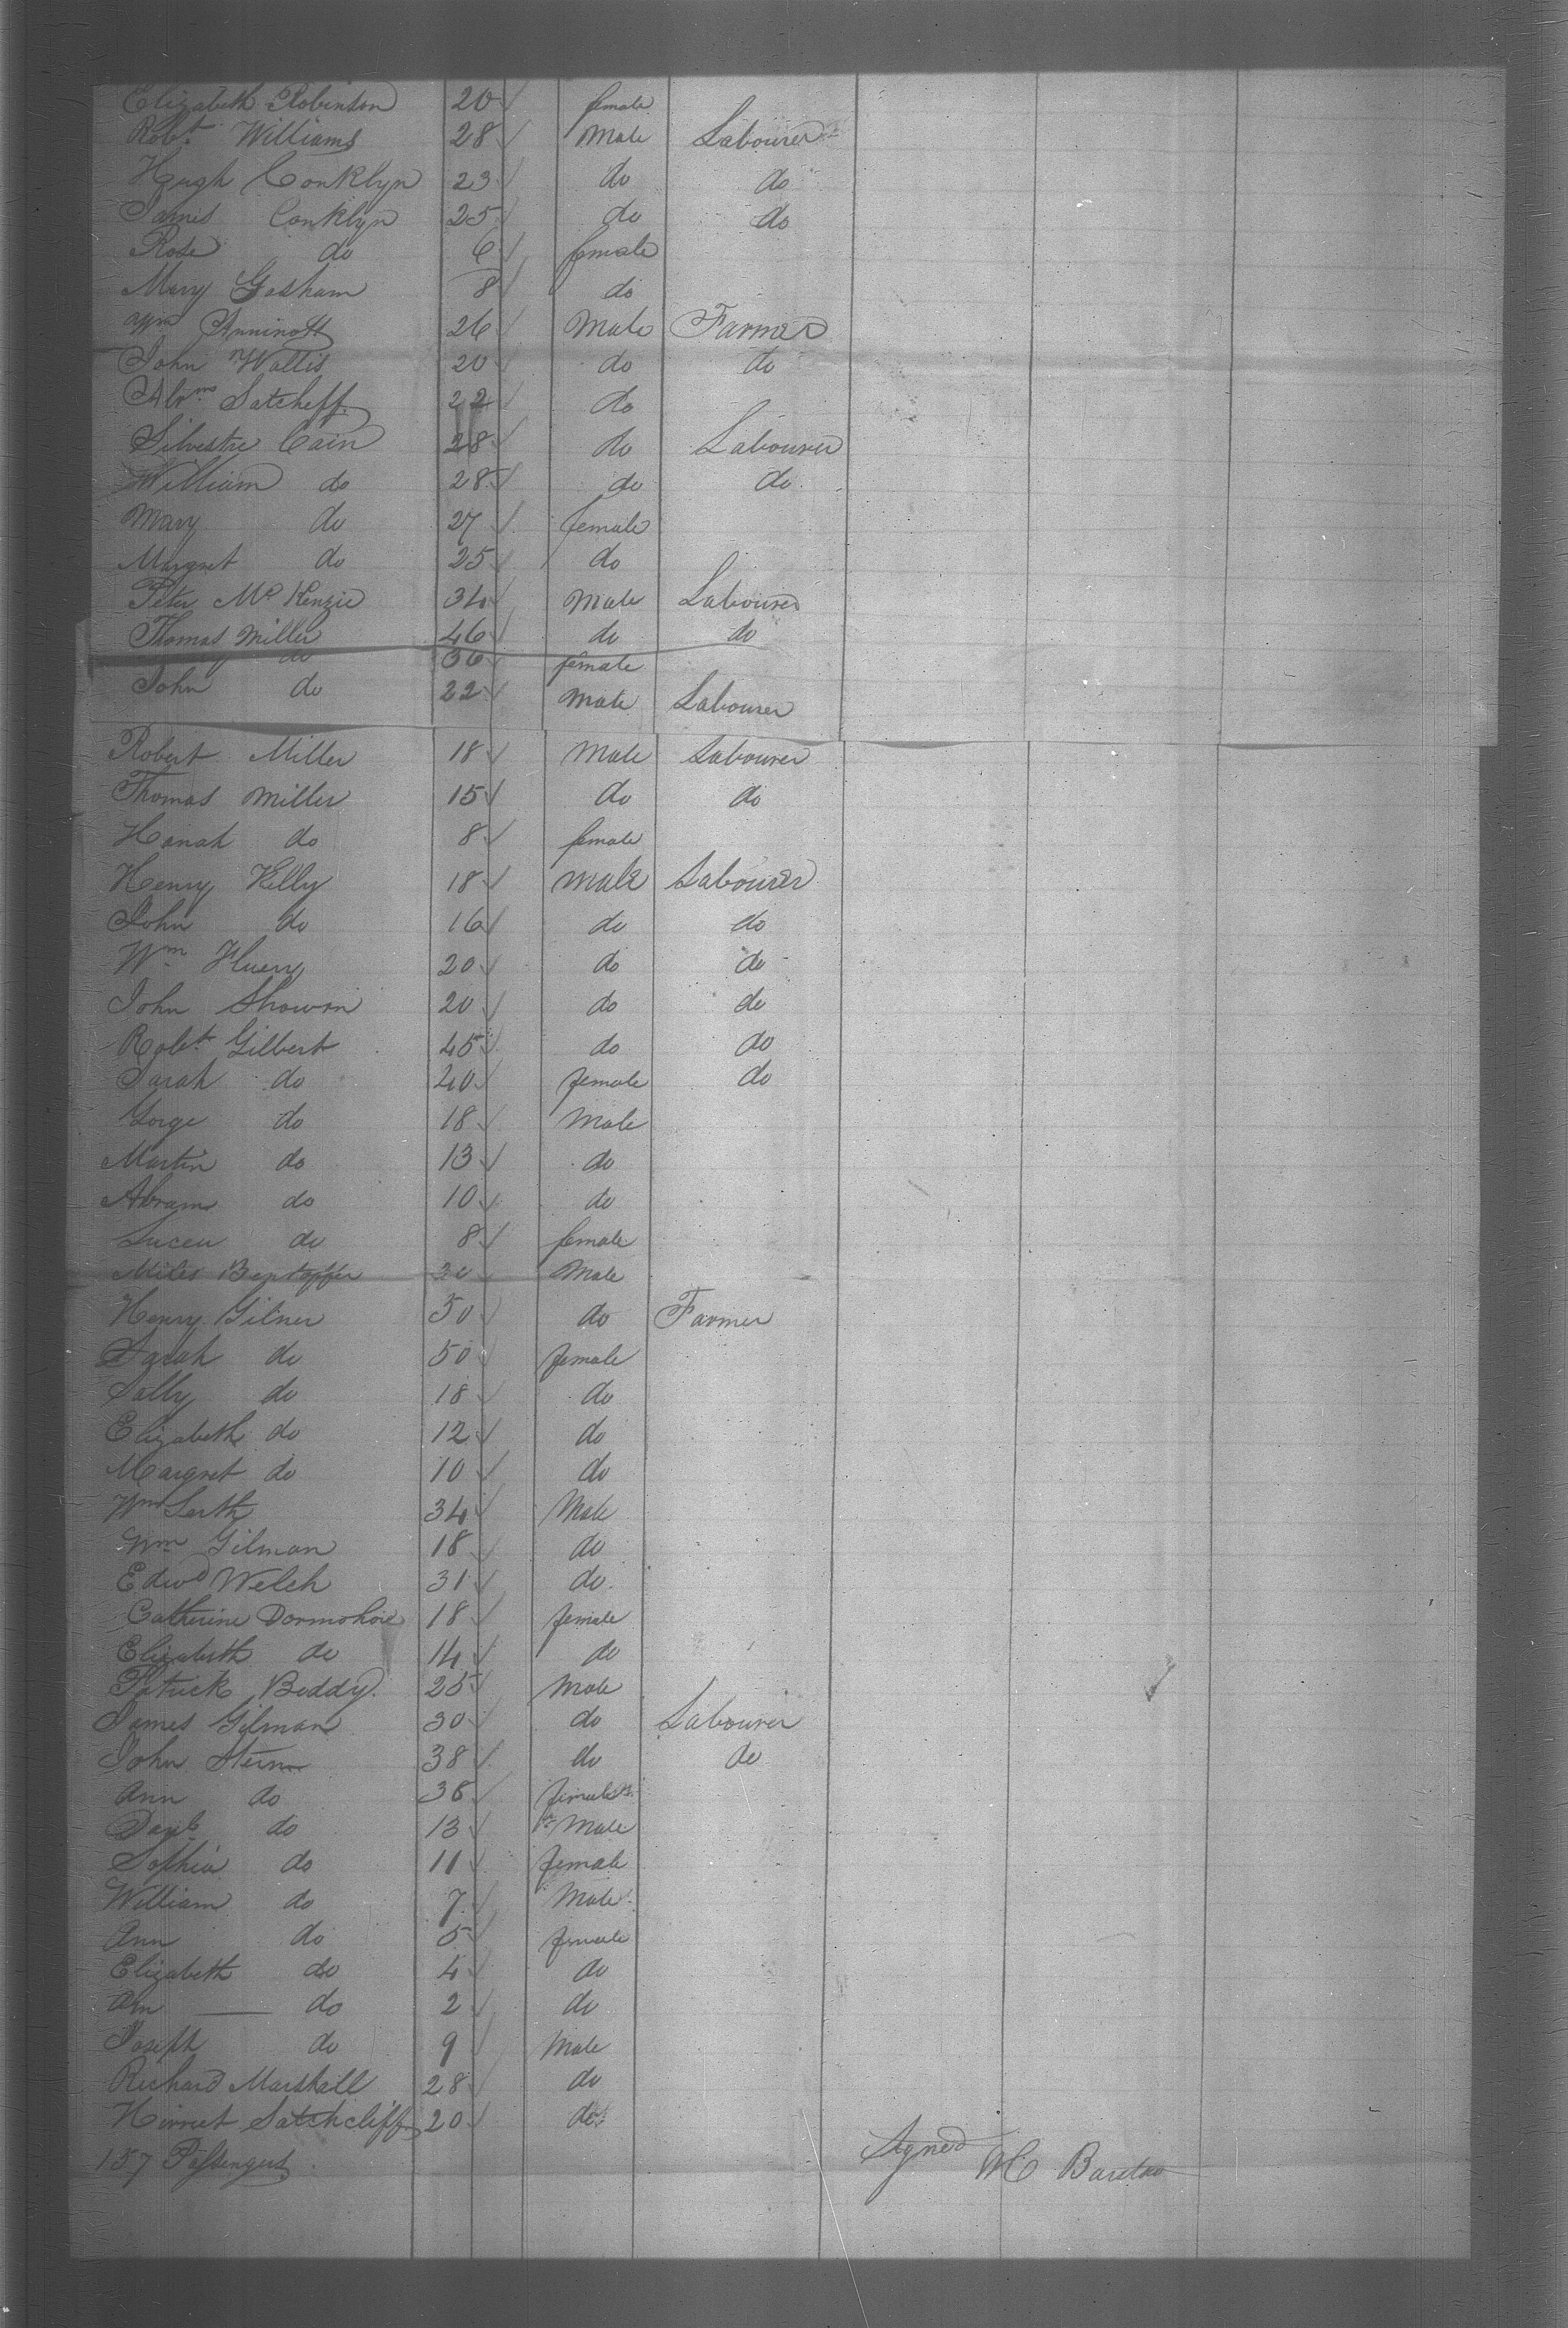 Elizabeth Robinson 20 female
Robt Williams 28 Male Labourer
Hugh Conklyn 23 do do
James Conklyn 25 do do
Rose do 6 female
Mary Gasham 8 do
Wm 26 Male Farmer
John Wallis 20 do do
Satcheff 22 do
Silvestre Cain 28 do Labourer
William do 28 do do
Mary do 27 female
Margret do 25 do
Peter McKenzie 34 Male Labourer
Thomas Miller 46 do do
do 36 female
John do 22 Male Labourer
Robert Miller 18 Male Labourer
Thomas Miller 15 do do
Hanah do 8 female
Henry Kelly 18 Male Labourer
John do 16 do do
Wm 20 do do
John Showin 20 do do
Robt Gilbert 45 do do
Sarah do 40 female do
Gorge do 18 Male
Martin do 13 do
Abram do 10 do
do 8 female
Miles Male
Henry Gilner 50 do Farmer
Sarah do 50 female
Sally do 18 do
Elizabeth do 12 do
Margret do 10 do
Wm 34 Male
Wm Gilman 18 do
Edwd Welch 31 do
Catherine 18 female
Elizabeth do 14 do
Patrick Beddy 25 Male
James Gilman 30 do Labourer
John Stern 38 do do
Ann do 38 female
do 13 Male
Sophia do 11 female
William do 7 Male
Ann do 5 female
Elizabeth do 4 do
Ann do 2 do
Joseph do 9 Male
Richard Marshall 28 do
Satchcliff 20 do
157 Passengers
Signed